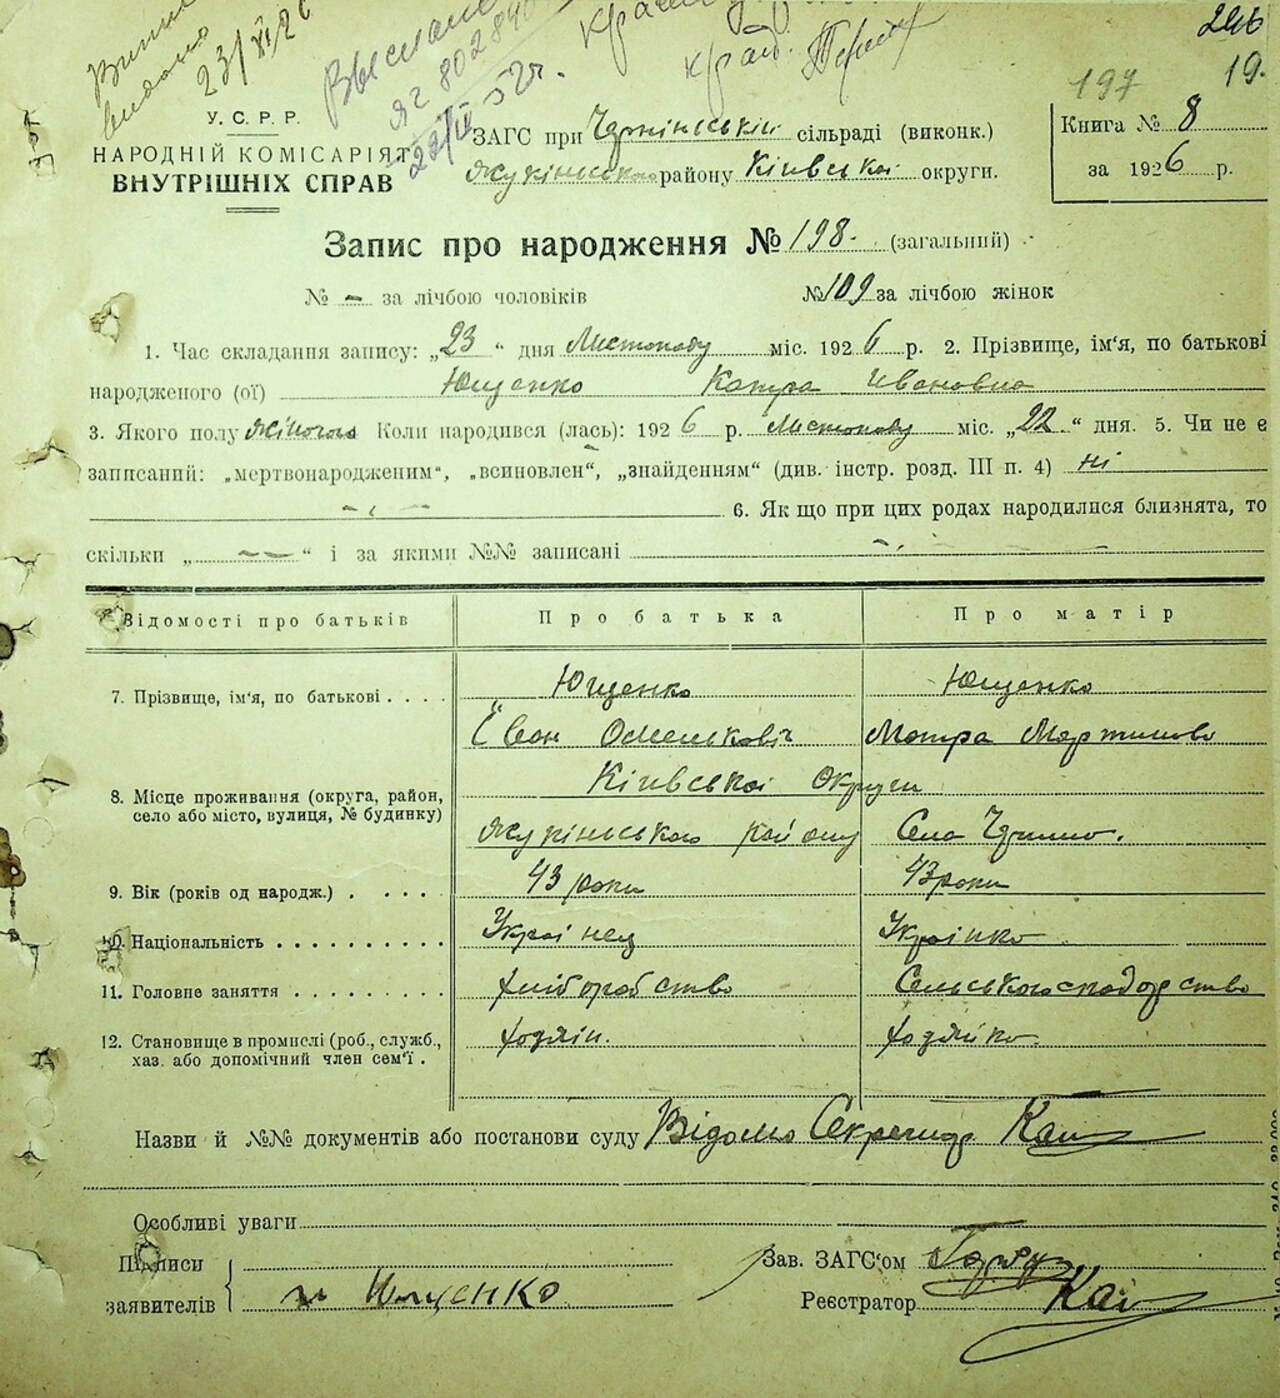 246
19.
197
23/VI 26
Выслано
ЯГ 802840
22/IV 52г.
У. С. Р. Р.
НАРОДНІЙ КОМІСАРІЯТ
ВНУТРІШНІХ СПРАВ
ЗАГС при сільраді (виконк.)
району Київської округи.
Книга № 8
за 1926 р.
Запис про народження № 198. (загальний)
№ – за лічбою чоловіків
№ 109 за лічбою жінок
1. Час складання запису: „23“ дня Листопаду міс. 1926 р. 2. Прізвище, ім‘я, по батькові
народженого (ої) Ющенко Катра Ивановна
3. Якого полу жіночого Коли народився (лась): 1926 р. Листопаду міс. „22“ дня. 5. Чи не є
записаний: „мертвонародженим“, „всиновлен“, „знайденням“ (див. інстр. розд. III п. 4) ні
6. Як що при цих родах народилися близнята, то
скільки „ — “ і за якими №№ записані
Відомості про батьків Про батька Про матір
7. Прізвище, ім‘я, по батькові . . . . Ющенко Ющенко
Іван Омелькович Мотра Мартинова
8. Місце проживання (округа, район, Київської Округи
село або місто, вулиця, № будинку) району Село
9. Вік (років од народж.) . . . . . 43 роки 43 роки
10. Національність . . . . . . . . . . Українец Українка
11. Головне заняття . . . . . . . . . Хліборобство Сельськогосподарство
12. Становище в промислі (роб., служб., Хозяїн. Хозяйка.
хаз. або допомічний член сем‘ї .
Назви й №№ документів або постанови суду Відомо Секретар
Особливі уваги
Підписи
заявителів Ющенко
Зав. ЗАГС‘ом
Реєстратор